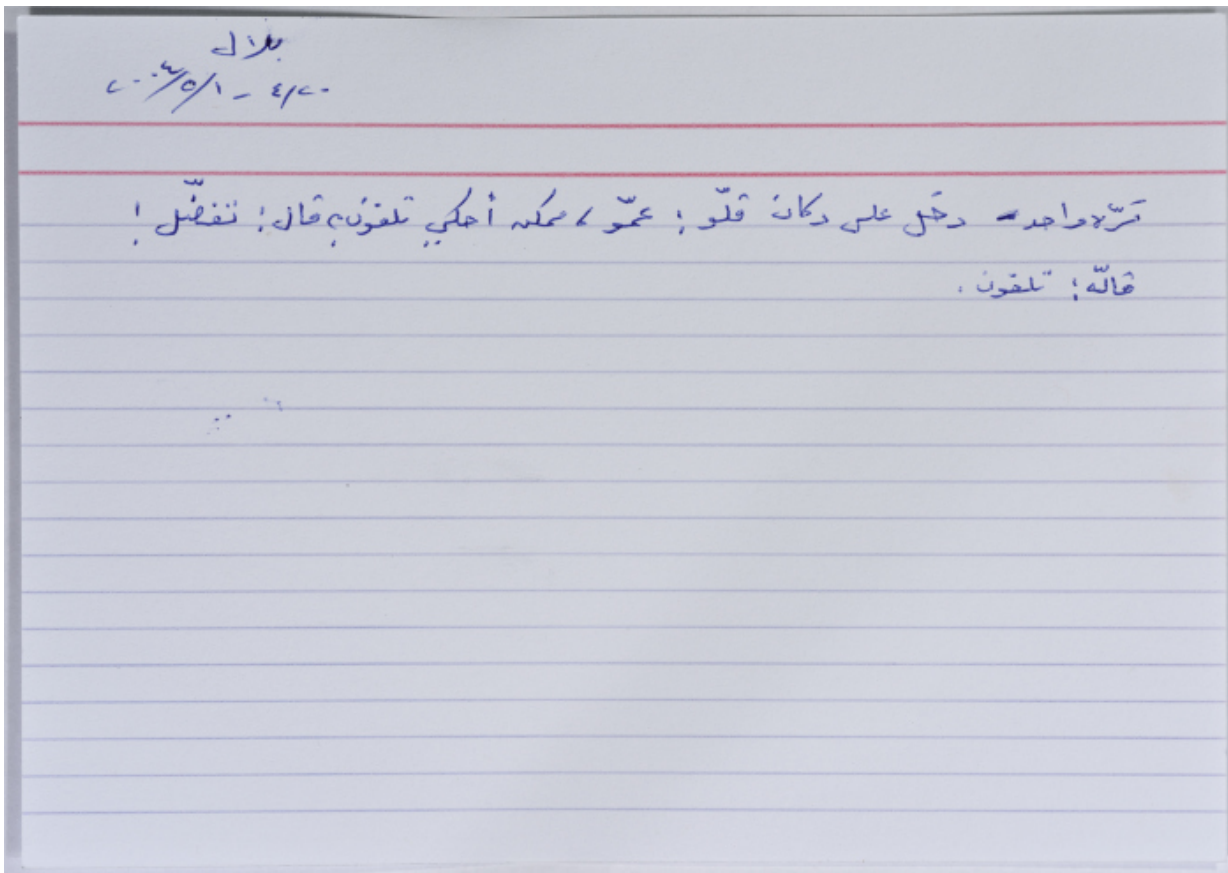 بلال
٤/٢٠ - ٢٠٠٤/٥/١
مرّة واحد - دخل على دكان قلّو: عمّو، ممكن أحكي تلفون؟ قال: تفضّل!
قالّه: تلفون.